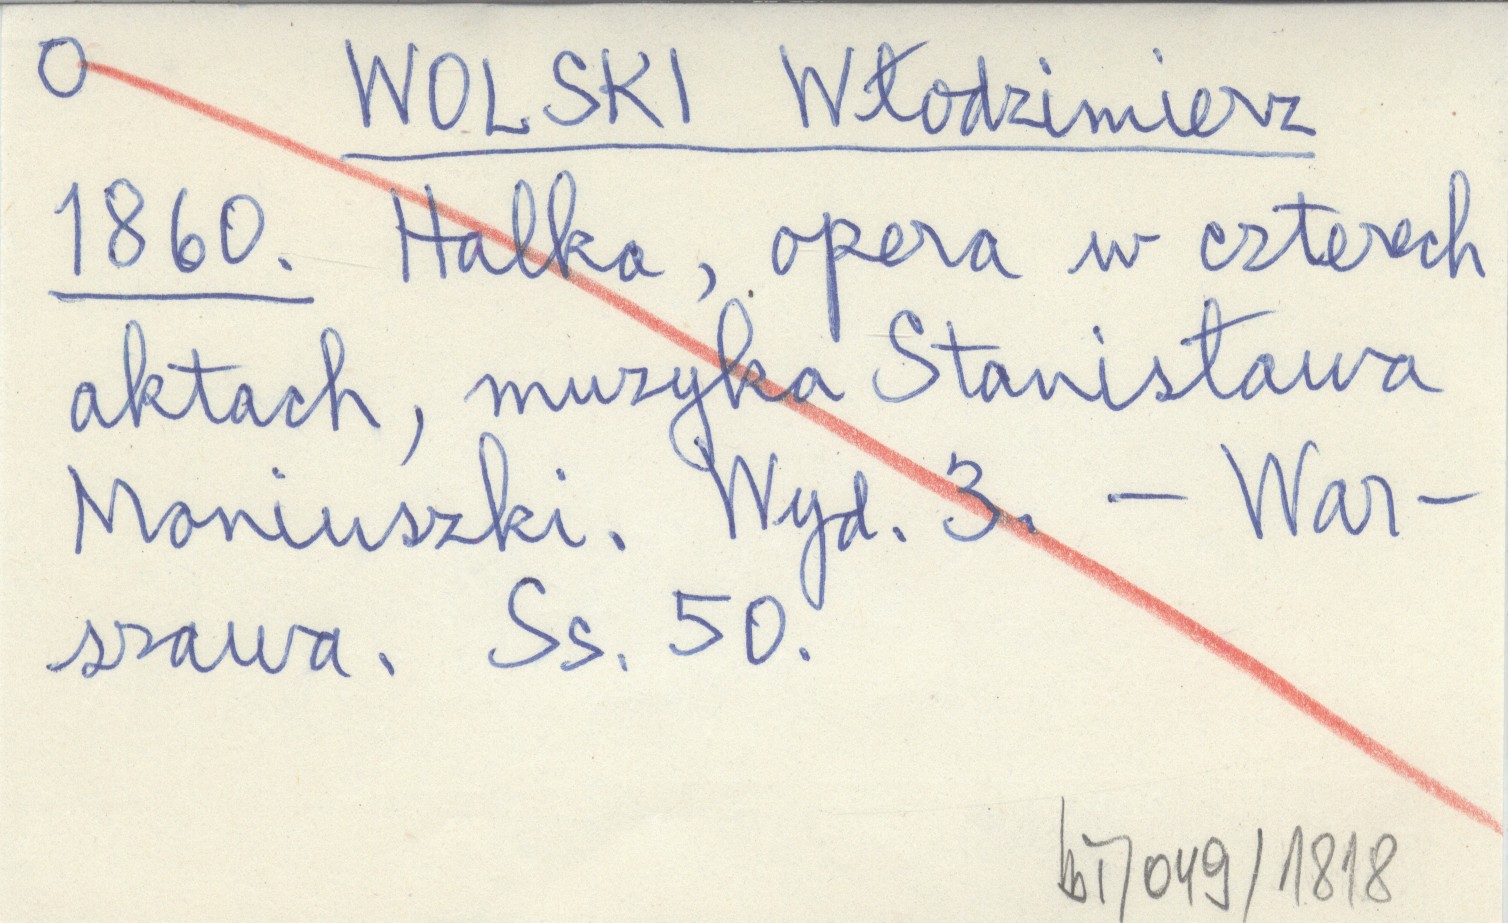 O WOLSKI Włodzimierz
1860. Halka, opera w czterech
aktach, muzyka Stanisława
Moniuszki. Wyd. 3. — War-
szawa. Ss. 50.
049/1818